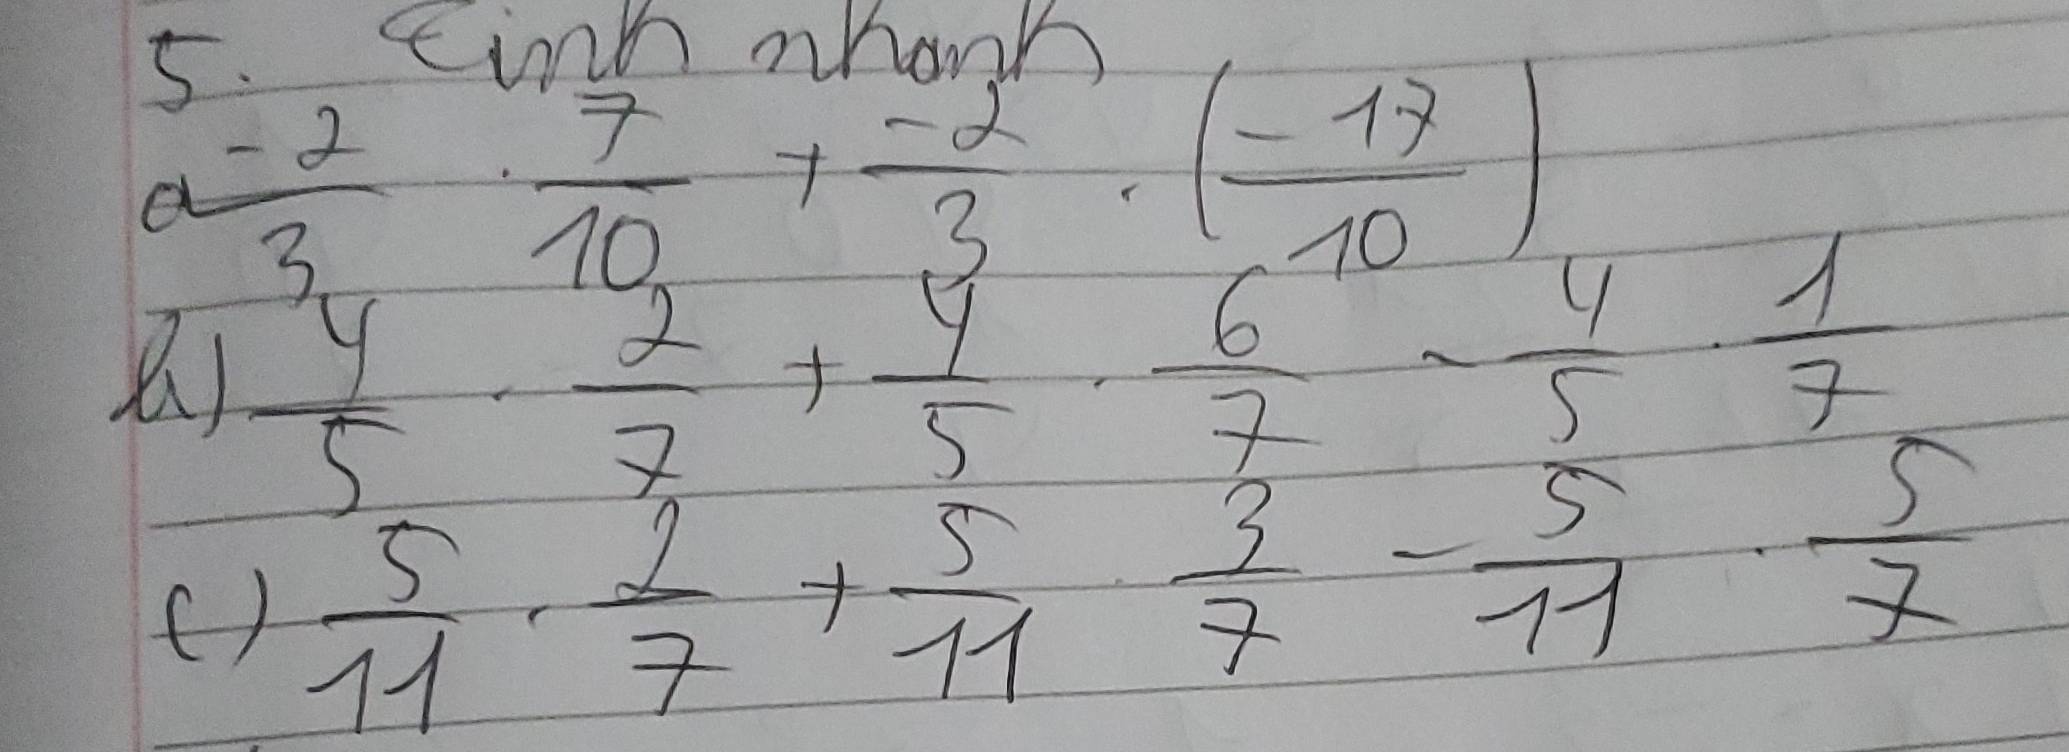 5. tính nhanh
a -2/3 . 7/10 + -2/3 . (-17/10)
b) 4/5 . 2/7 + 4/5 . 6/7 - 4/5 . 1/7
c) 5/11 . 2/7 + 5/11 . 3/7 - 5/11 . 5/7